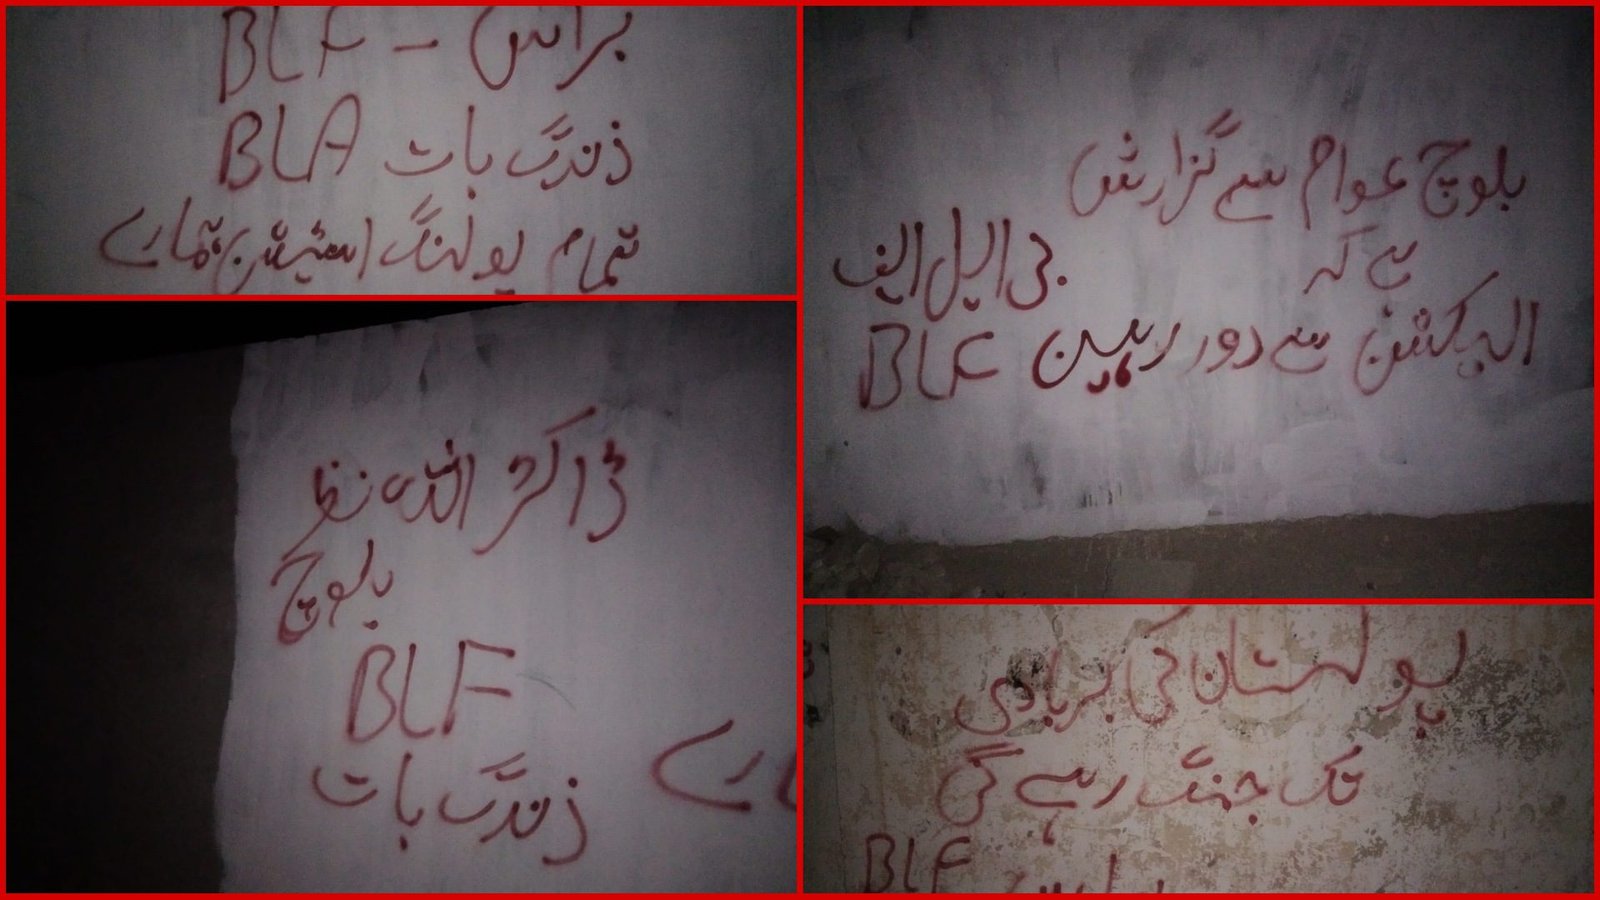 براس - BLF
زندگ بات BLA
تمام پولنگ اسٹیشن ہمارے
ڈاکٹر اللہ نظر
بلوچ
BLF
زندگ بات
بلوچ عوام سے گزارش
ہے کہ
بی ایل ایف
الیکشن سے دور رہیں BLF
کی بربادی
تک جنگ رہے گی
BLF